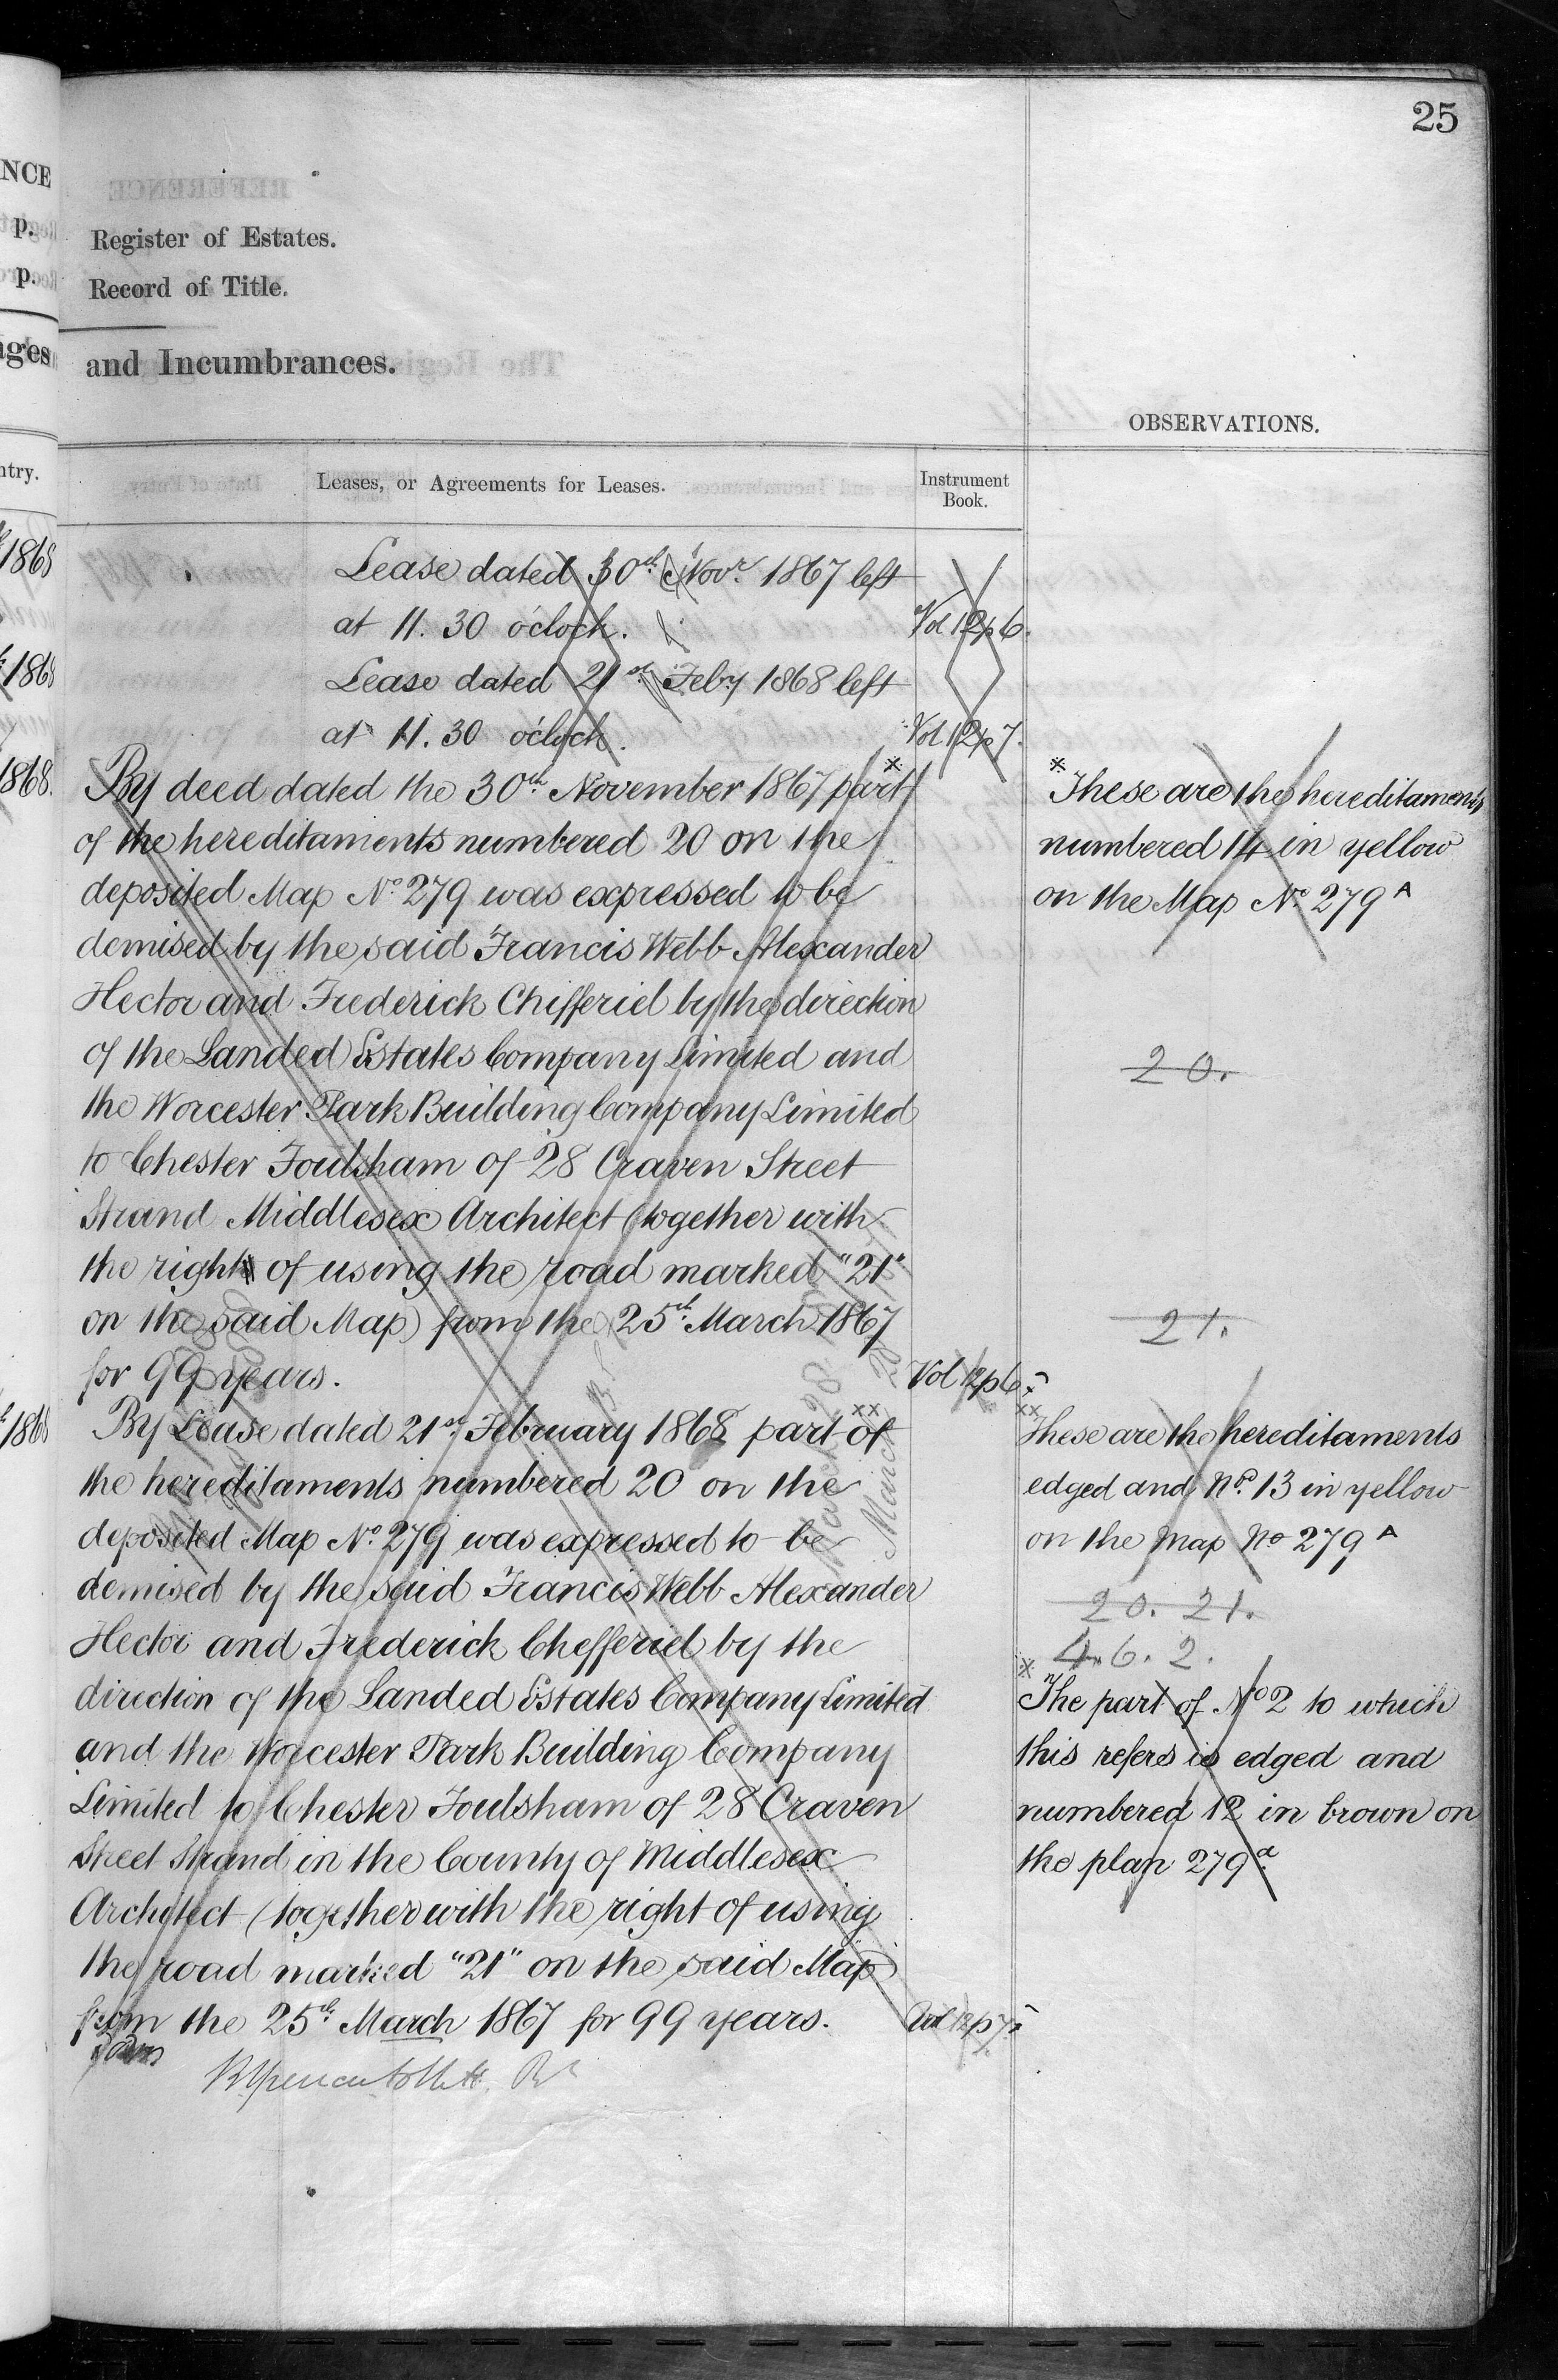 25
NCE
p.
p.
ages
ntry.
1868
1868
1868.
1868
Register of Estates.
Record of Title.
and Incumbrances.
OBSERVATIONS.
Leases, or Agreements for Leases.
Instrument
Book.
Lease dated 30th Novr. 1867 left
at 11.30 o'clock.
Vol 12 p 6.
Lease dated 21st Feby 1868 left
at 11.30 o'clock.
Vol 12 p 7.
By deed dated the 30th November 1867 part
of the hereditaments numbered 20 on the
deposited Map No. 279 was expressed to be
demised by the said Francis Webb Alexander
Hector and Frederick Chifferiel by the direction
of the Landed Estates Company Limited and
the Worcester Park Building Company Limited
to Chester Foulsham of 28 Craven Street
Strand Middlesex Architect (together with
the right of using the road marked "21"
on the said Map) from the 25th March 1867
for 99 years.
Vol 12 p 6.
By Lease dated 21st February 1868 part xx of
the hereditaments numbered 20 on the
deposited Map No. 279 was expressed to be
demised by the said Francis Webb Alexander
Hector and Frederick Chefferiel by the
direction of the Landed Estates Company Limited
and the Worcester Park Building Company
Limited to Chester Foulsham of 28 Craven
Street Strand in the County of Middlesex
Architect (together with the right of using
the road marked "21" on the said Map)
from the 25th March 1867 for 99 years.
Vol 12 p 7.
※ These are the hereditaments
numbered 14 in yellow
on the Map No. 279 A
20.
21.
xx These are the hereditaments
edged and No. 13 in yellow
on the Map No 279 A
20. 21.
4. 6. 2.
※ The part of No 2 to which
this refers is edged and
numbered 12 in brown on
the plan 279a.